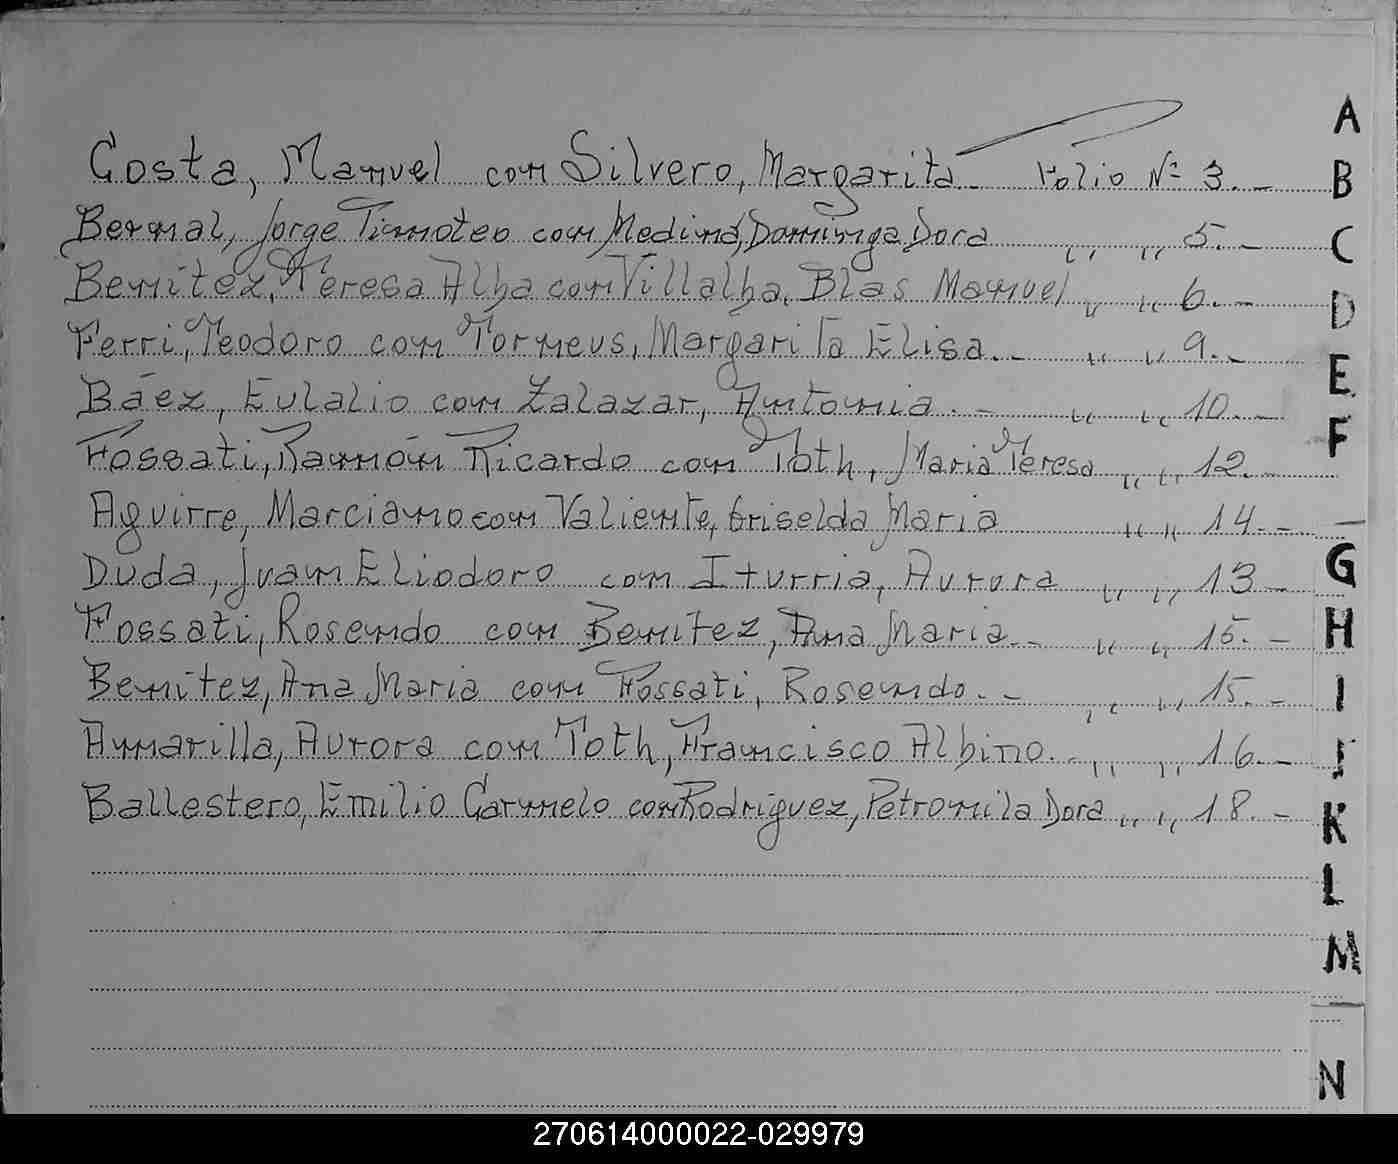 Costa, Manuel con Silvero, Margarita Folio Nº 3.-
Bernal, Jorge Timoteo con Medina, Dominga Dora " " 5.-
Benitez, Teresa Alba con Villalba, Blas Manuel " " 6.-
Ferri, Teodoro con Torneus, Margarita Elisa.- " " 9.-
Báez, Eulalio con Zalazar, Antonia.- " " 10.-
Fossati, Ramón Ricardo con Toth, Maria Teresa " " 12.-
Aguirre, Marciano con Valiente, Griselda Maria " " 14.-
Duda, Juan Eliodoro con Iturria, Aurora " " 13-
Fossati, Rosendo con Benitez, Ana Maria.- " " 15.-
Benitez, Ana Maria con Fossati, Rosendo.- " " 15.-
Amarilla, Aurora con Toth, Francisco Albino.- " " 16.-
Ballestero, Emilio Carmelo con Rodríguez, Petronila Dora " " 18.-
A
B
C
D
E
F
G
H
I
K
L
M
N
270614000022-029979